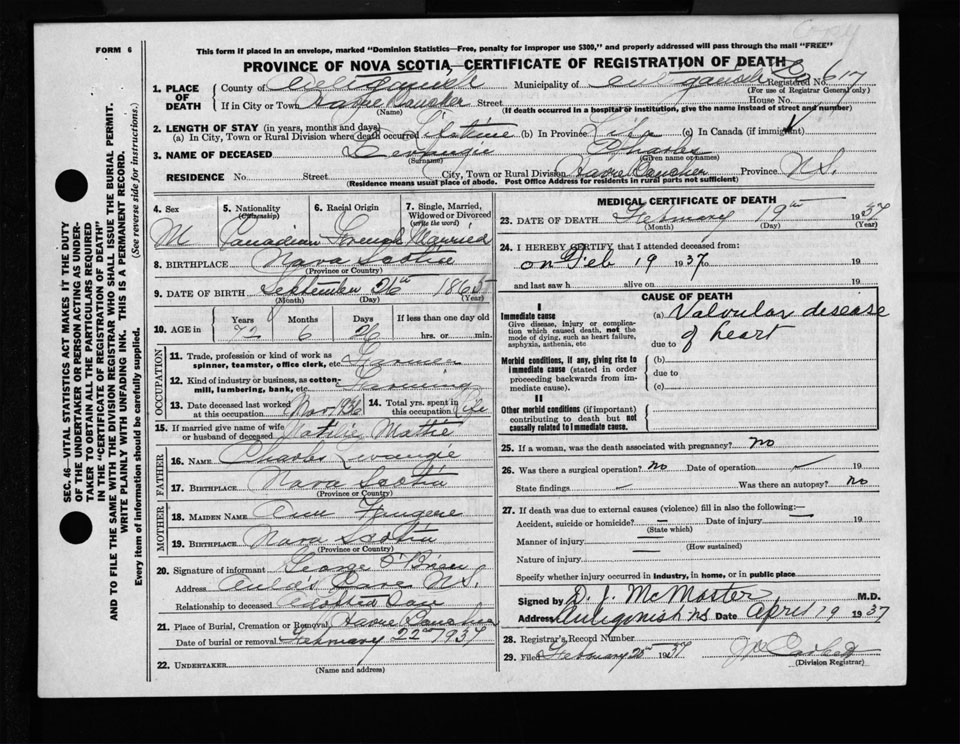 FORM 6
This form if placed in an envelope, marked "Dominion Statistics—Free, penalty for improper use $300," and properly addressed will pass through the mail "FREE"
PROVINCE OF NOVA SCOTIA—CERTIFICATE OF REGISTRATION OF DEATH
SEC. 46—VITAL STATISTICS ACT MAKES IT THE DUTY
OF THE UNDERTAKER OR PERSON ACTING AS UNDER-
TAKER TO OBTAIN ALL THE PARTICULARS REQUIRED
IN THE "CERTIFICATE OF REGISTRATION OF DEATH"
AND TO FILE THE SAME WITH THE DIVISION REGISTRAR WHO SHALL ISSUE THE BURIAL PERMIT.
WRITE PLAINLY WITH UNFADING INK. THIS IS A PERMANENT RECORD.
Every item of information should be carefully supplied. (See reverse side for instructions.)
1. PLACE OF DEATH
County of Antigonish Municipality of Antigonish Registered No. 617
(For use of Registrar General only)
If in City or Town Havre Boucher Street House No.
(Name) (If death occurred in a hospital or institution, give its name instead of street and number)
2. LENGTH OF STAY (in years, months and days)
(a) In City, Town or Rural Division where death occurred Lifetime (b) In Province Life (c) In Canada (if immigrant)
3. NAME OF DECEASED Levangie Charles
(Surname) (Given name or names)
RESIDENCE No. Street City, Town or Rural Division Havre Boucher Province N.S.
(Residence means usual place of abode. Post Office Address for residents in rural parts not sufficient)
4. Sex M
5. Nationality (Citizenship) Canadian
6. Racial Origin French
7. Single, Married, Widowed or Divorced (write the word) Married
8. BIRTHPLACE Nova Scotia
(Province or Country)
9. DATE OF BIRTH September 26th 1865
(Month) (Day) (Year)
10. AGE in Years Months Days If less than one day
72 6 26 hrs. or min.
OCCUPATION
11. Trade, profession or kind of work as spinner, teamster, office clerk, etc. Farmer
12. Kind of industry or business, as cotton-mill, lumbering, bank, etc. Farming
13. Date deceased last worked at this occupation Nov. 1936
14. Total yrs. spent in this occupation Life
15. If married give name of wife or husband of deceased Mattie
FATHER
16. NAME Charles Levangie
17. BIRTHPLACE Nova Scotia
(Province or Country)
MOTHER
18. MAIDEN NAME Ann
19. BIRTHPLACE Nova Scotia
(Province or Country)
20. Signature of informant George O'Brien
Address Auld's Cove N.S.
Relationship to deceased Adopted Son
21. Place of Burial, Cremation or Removal Havre Boucher
Date of burial or removal February 22nd 1937
22. UNDERTAKER
(Name and address)
MEDICAL CERTIFICATE OF DEATH
23. DATE OF DEATH February 19th 1937
(Month) (Day) (Year)
24. I HEREBY CERTIFY that I attended deceased from:
on Feb 19 1937 19
and last saw h alive on 19
CAUSE OF DEATH
I
Immediate cause
Give disease, injury or complication which caused death, not the mode of dying, such as heart failure, asphyxia, asthenia, etc
(a) Valvular disease
due to of heart
Morbid conditions, if any, giving rise to immediate cause (stated in order proceeding backwards from immediate cause).
(b)
due to
(c)
II
Other morbid conditions (if important) contributing to death but not causally related to immediate cause.
25. If a woman, was the death associated with pregnancy? no
26. Was there a surgical operation? no Date of operation 19
State findings Was there an autopsy? no
27. If death was due to external causes (violence) fill in also the following:—
Accident, suicide or homicide? Date of injury 19
(State which)
Manner of injury
(How sustained)
Nature of injury
Specify whether injury occurred in industry, in home, or in public place
Signed by D. J. McMaster, M.D.
Address Antigonish NS Date April 19 1937
28. Registrar's Record Number
29. Filed February 1937
(Division Registrar)